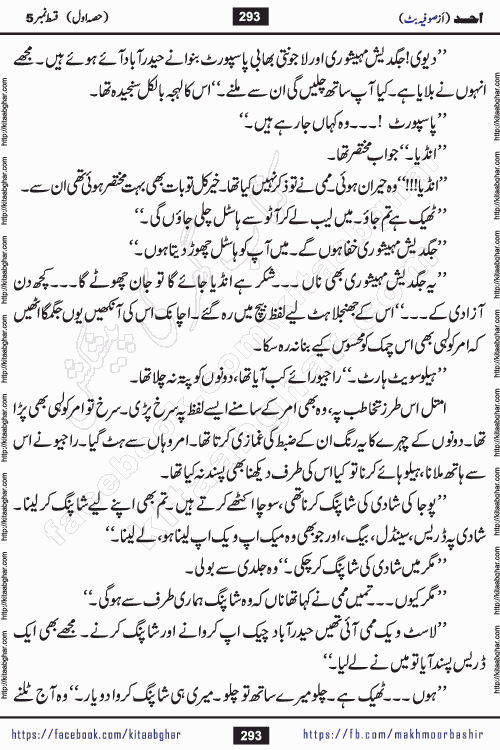 احد (از صوفیہ بٹ) 293 (حصہ اول) قسط نمبر 5
’’دیوی! جگدیش مہیشوری اور لاجونتی بھابی پاسپورٹ بنوانے حیدرآباد آئے ہوئے ہیں۔ مجھے
انہوں نے بلایا ہے۔ کیا آپ ساتھ چلیں گی ان سے ملنے۔‘‘ اس کا لہجہ بالکل سنجیدہ تھا۔
’’پاسپورٹ !۔۔۔وہ کہاں جا رہے ہیں۔‘‘
’’انڈیا۔‘‘ جواب مختصر تھا۔
’’انڈیا!!!‘‘ وہ حیران ہوئی۔ ممی نے تو ذکر نہیں کیا تھا۔ خیر کل تو بات بھی بہت مختصر ہوئی تھی ان سے۔
’’ٹھیک ہے تم جاؤ۔ میں لیب لے کر آٹو سے ہاسٹل چلی جاؤں گی۔‘‘
’’جگدیش مہیشوری خفا ہوں گے۔ میں آپ کو ہاسٹل چھوڑ دیتا ہوں۔‘‘
’’یہ جگدیش مہیشوری بھی ناں ۔۔۔ شکر ہے انڈیا جائے گا تو جان چھوٹے گا۔۔۔کچھ دن
آزادی کے۔۔۔‘‘ اس کے جھنجلاہٹ لیے لفظ بیچ میں رہ گئے۔ اچانک اس کی آنکھیں یوں جگمگا اٹھیں
کہ امر کوہلی بھی اس چمک کو محسوس کیے بنا نہ رہ سکا۔
’’ہیلو سویٹ ہارٹ۔‘‘ راجیو رائے کب آیا تھا، دونوں کو پتہ نہ چلا تھا۔
امتل اس طرز تخاطب پہ، وہ بھی امر کے سامنے ایسے لفظ پہ سرخ پڑی۔ سرخ تو امر کوہلی بھی پڑا
تھا۔ دونوں کے چہرے کا یہ رنگ ان کے ضبط کی غمازی کرتا تھا۔ امر وہاں سے ہٹ گیا۔ راجیو نے اس
سے ہاتھ ملانا، ہیلو ہائے کرنا تو کیا اس کی طرف دیکھنا بھی پسند نہ کیا تھا۔
’’پوجا کی شادی کی شاپنگ کرنا تھی، سوچا اکٹھے کرتے ہیں۔ تم بھی اپنے لیے شاپنگ کر لینا۔
شادی پہ ڈریس، سینڈل، بیگ، اور جو بھی وہ میک اپ ویک اپ لینا ہو، لے لینا۔‘‘
’’مگر میں شادی کی شاپنگ کر چکی۔‘‘ وہ جلدی سے بولی۔
’’مگر کیوں۔۔۔تمہیں ممی نے کہا تھا ناں کہ وہ شاپنگ ہماری طرف سے ہو گی۔‘‘
’’لاسٹ ویک ممی آئی تھیں حیدرآباد چیک اپ کروانے اور شاپنگ کرنے۔ مجھے بھی ایک
ڈریس پسند آیا تو میں نے لے لیا۔‘‘
’’ہوں ۔۔۔ٹھیک ہے۔ چلو میرے ساتھ تو چلو۔ میری ہی شاپنگ کروا دو یار۔‘‘ وہ آج ٹلنے
https://facebook.com/kitaabghar 293 https://fb.com/makhmoorbashir
http://kitaabghar.com http://kitaabghar.com http://kitaabghar.com http://kitaabghar.com http://kitaabghar.com